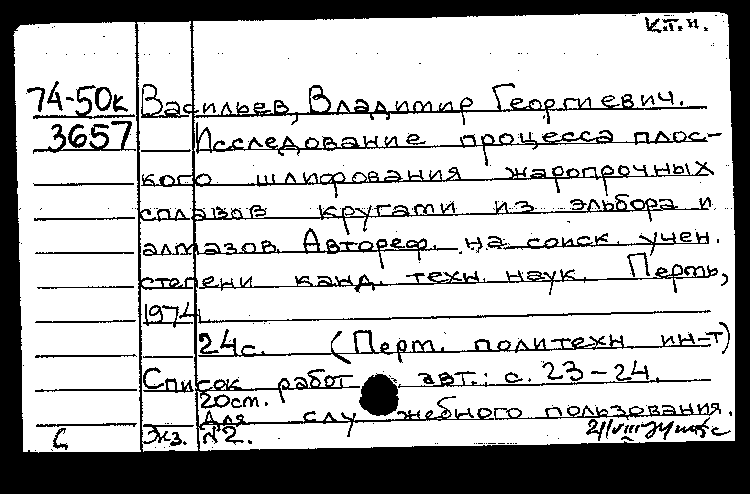 К.Т.Н.
74-50к Васильев, Владимир Георгиевич.
3657 Исследование процесса плос-
кого шлифования жаропрочных
сплавов кругами из эльбора и
алмазов. Автореф. на соиск. учен.
степени канд. техн. наук. Пермь,
1974.
24с. (Перм. политехн ин-т)
Список работ авт.: с. 23-24.
20см.
Для служебного пользования.
С Экз. №2.